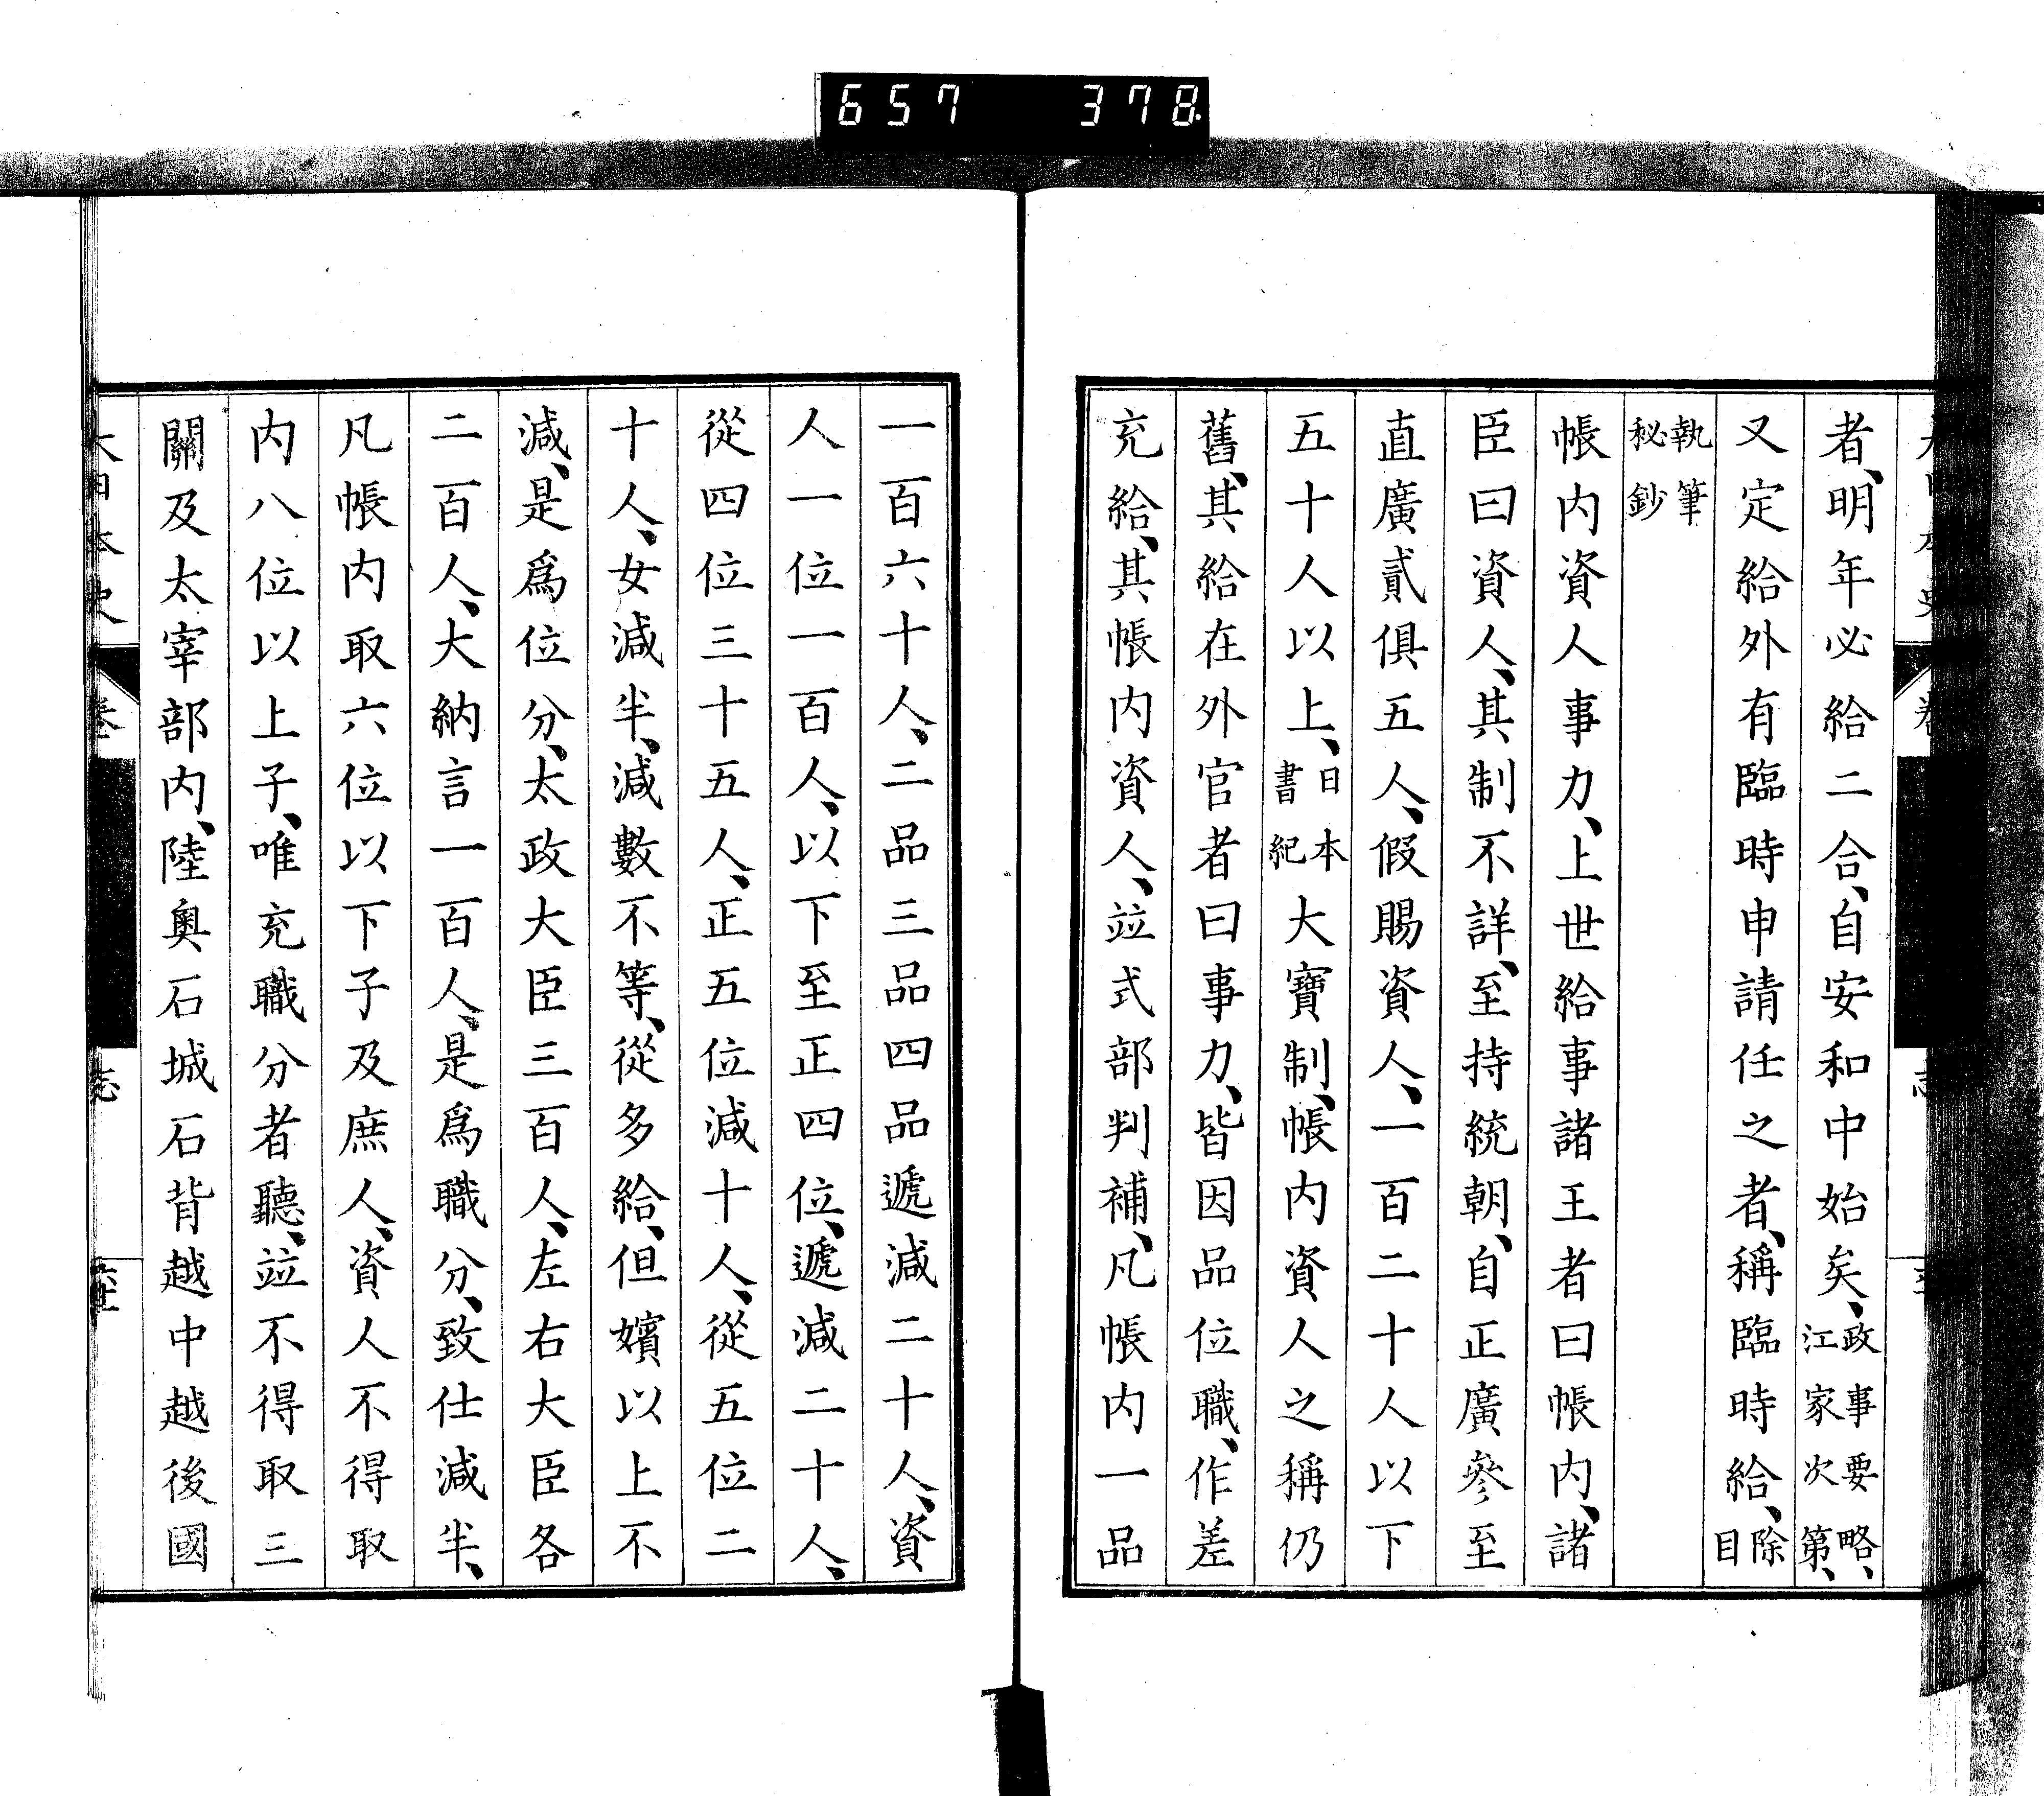 657 378
者、明年必給二合、自安和中始矣、政事要略、江家次第、
又定給外有臨時申請任之者、稱臨時給、除目
執筆秘鈔
帳内資人事力、上世給事諸王者曰帳内、諸
臣曰資人、其制不詳、至持統朝、自正廣參至
直廣貳俱五人、假賜資人、一百二十人以下
五十人以上、日本書紀大寶制、帳内資人之稱仍
舊、其給在外官者曰事力、皆因品位職、作差
充給、其帳内資人、竝式部判補、凡帳内一品
一百六十人、二品三品四品遞減二十人、資
人一位一百人、以下至正四位、遞減二十人、
從四位三十五人、正五位減十人、從五位二
十人、女減半、減數不等、從多給、但嬪以上不
減、是爲位分、太政大臣三百人、左右大臣各
二百人、大納言一百人、是爲職分、致仕減半、
凡帳内取六位以下子及庶人、資人不得取
内八位以上子、唯充職分者聽、竝不得取三
關及太宰部内、陸奥石城石背越中越後國
大日本史 卷 志